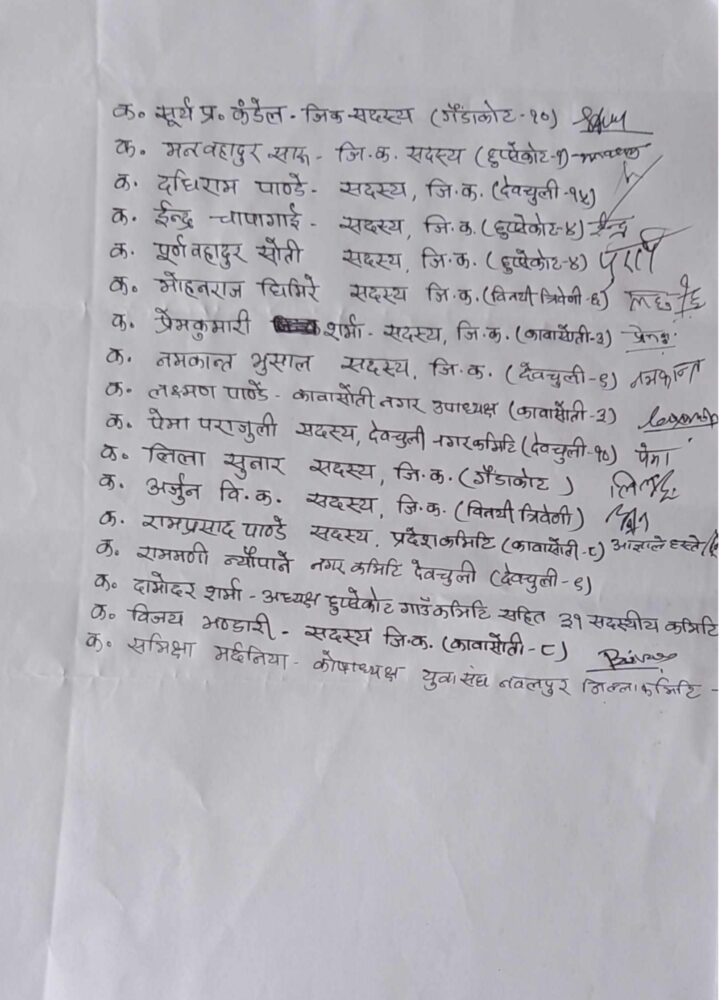 क. सूर्य प्र. कंडेल - जिक सदस्य (गैंडाकोट-१०)
क. मनबहादुर सारू - जि.क. सदस्य (हुप्सेकोट-१)
क. दधिराम पाण्डे - सदस्य, जि.क. (देवचुली-१५)
क. ईन्द्र चापागाई - सदस्य, जि.क. (हुप्सेकोट-४) ईन्द्र
क. पूर्णवहादुर सोती सदस्य, जि.क. (हुप्सेकोट-४) पूर्ण
क. मोहनराज घिमिरे सदस्य जि.क. (विनयी त्रिवेणी-६)
क. प्रेमकुमारी शर्मा - सदस्य, जि.क. (कावासोती-३)
क. नमकान्त भुसाल सदस्य, जि.क. (देवचुली-६) नमकान्त
क. लक्ष्मण पाण्डे - कावासोती नगर उपाध्यक्ष (कावासोती-३)
क. पेमा पराजुली सदस्य, देवचुली नगरकमिटि (देवचुली-१०) पेमा
क. लिला सुनार सदस्य, जि.क. (गैंडाकोट )
क. अर्जुन वि.क. सदस्य, जि.क. (विनयी त्रिवेणी)
क. रामप्रसाद पाण्डे सदस्य, प्रदेशकमिटि (कावासोती-८)
क. राममणी न्यौपाने नगर कमिटि देवचुली (देवचुली-६)
क. दामोदर शर्मा - अध्यक्ष हुप्सेकोट गाउँकमिटि सहित ३१ सदस्यीय कमिटि
क. विजय भण्डारी - सदस्य जि.क. (कावासोती-८)
क. समिक्षा मर्दनिया - कोषाध्यक्ष युवा संघ नवलपुर जिल्लाकमिटि -